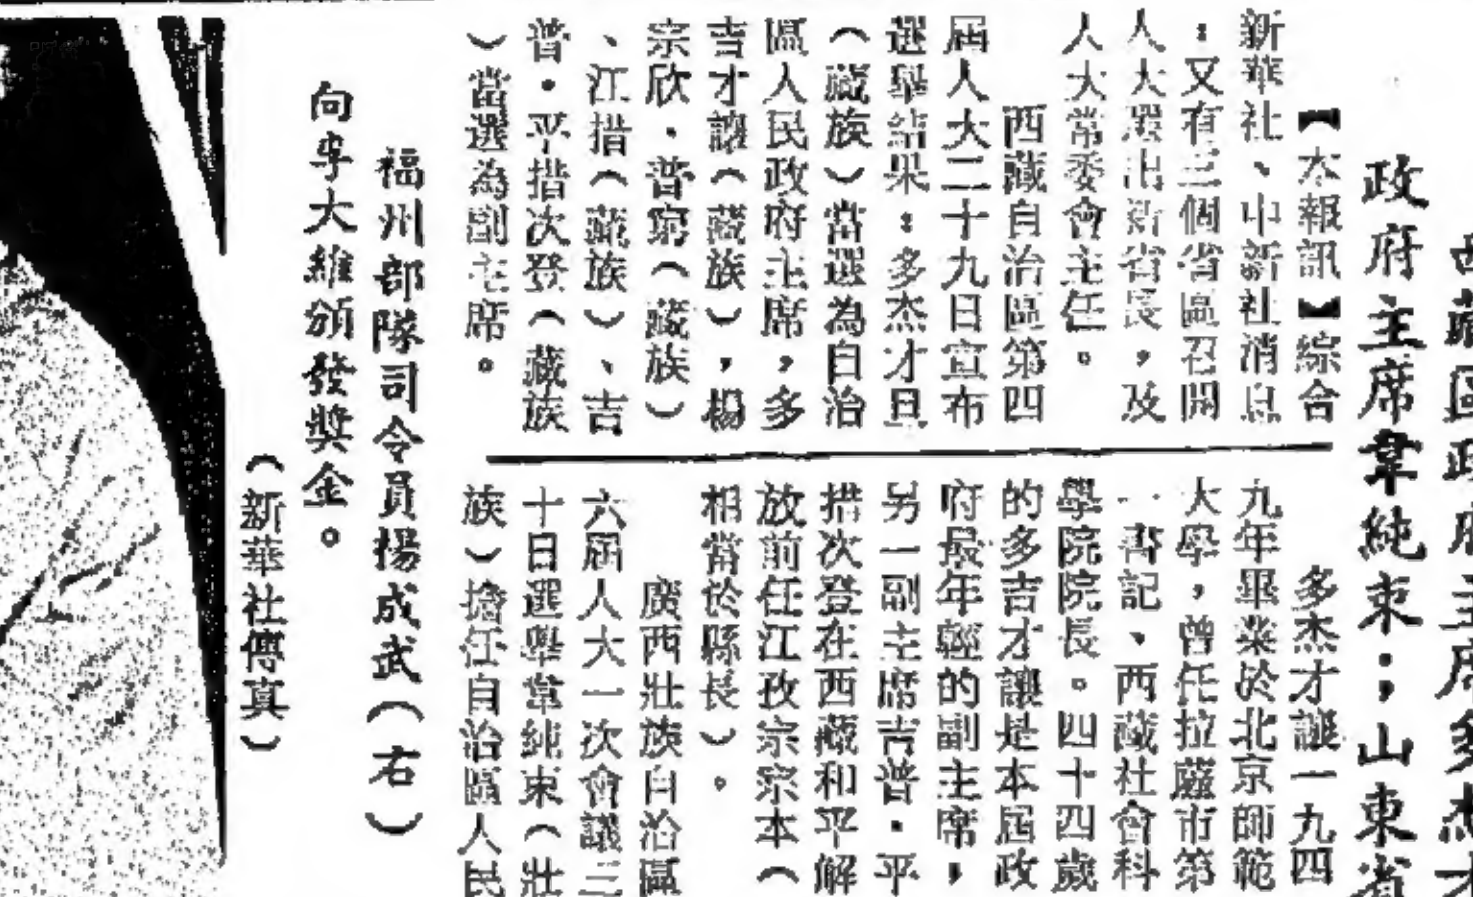 西藏區政府主席多杰才
政府主席韋純束；山東省
【本報訊】綜合
新華社、中新社消息
：又有三個省區召開
人大選出新省長，及
人大常委會主任。
西藏自治區第四
屆人大二十九日宣布
選舉結果：多杰才旦
（藏族）當選為自治
區人民政府主席，多
吉才讓（藏族），楊
宗欣．普窮（藏族）
、江措（藏族）、吉
普．平措次登（藏族
）當選為副主席。
多杰才讓一九四
九年畢業於北京師範
大學，曾任拉薩市第
一書記、西藏社會科
學院院長。四十四歲
的多吉才讓是本屆政
府最年輕的副主席，
另一副主席吉普．平
措次登在西藏和平解
放前任江孜宗宗本（
相當於縣長）。
廣西壯族自治區
六屆人大一次會議三
十日選舉韋純束（壯
族）擔任自治區人民
福州部隊司令員楊成武（右）
向李大維頒發獎金。
（新華社傳真）